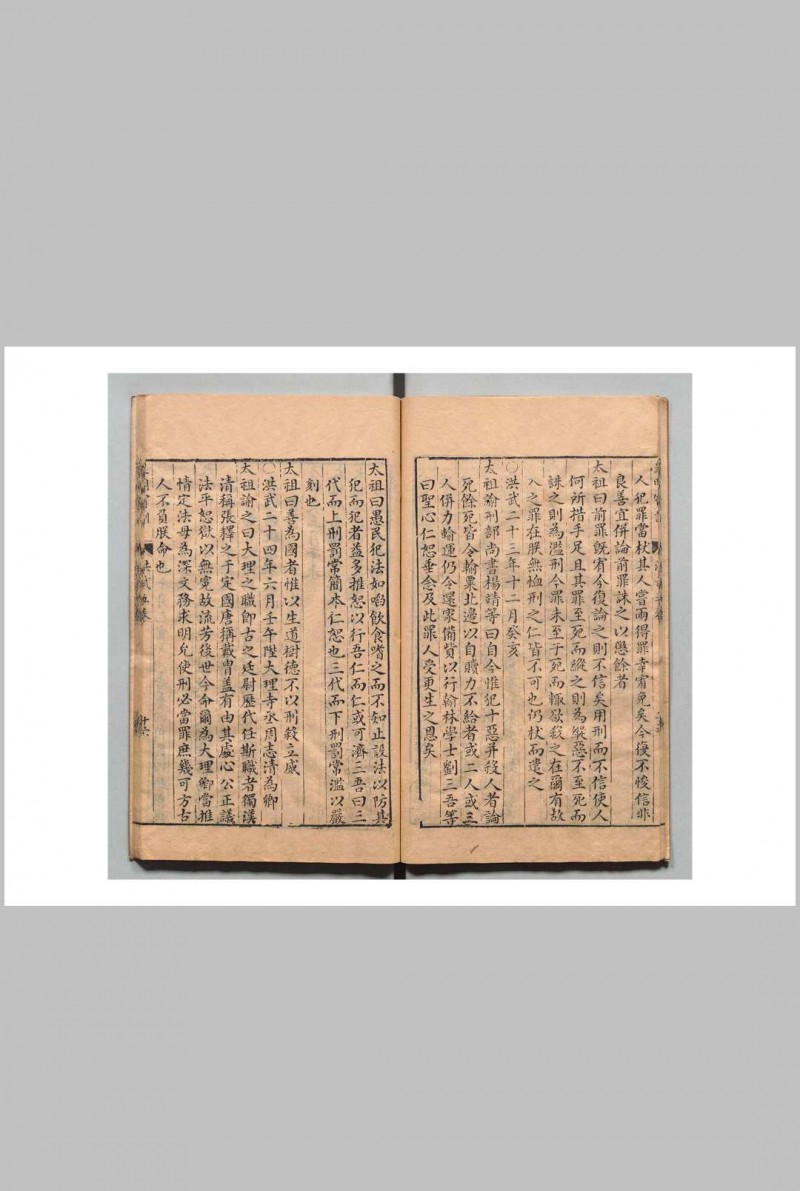 人犯罪當杖其人嘗兩得罪幸宥免矣今復不悛信非
良善宜併論前罪誅之以懲餘者
太祖曰前罪既宥今復論之則不信矣用刑而不信使人
何所措手足且其罪至死而縱之則為縱惡不至死而
誅之則為濫刑今罪未至于死而輒欲殺之在爾有故
入之罪在朕無恤刑之仁皆不可也仍杖而遣之
○洪武二十三年十二月癸亥
太祖諭刑部尚書楊靖等曰自今惟犯十惡并殺人者論
死餘死皆令輸粟北邊以自贖力不給者或二人或三
人併力輸運仍令還家備貲以行翰林學士劉三吾等
曰聖心仁恕垂念及此罪人受更生之恩矣
太祖曰愚民犯法如啗飲食嗜之而不知止設法以防其
犯而犯者益多推恕以行吾仁而仁或可濟三吾曰三
代而上刑罰常簡本仁恕也三代而下刑罰常濫以嚴
刻也
太祖曰善為國者惟以生道樹德不以刑殺立威
○洪武二十四年六月壬午陞大理寺丞周志清為卿
太祖諭之曰大理之職即古之廷尉歷代任斯職者獨漢
清稱張釋之于定國唐稱戴冑蓋有由其處心公正議
法平恕獄以無冤故流芳後世今命爾為大理卿當推
情定法毋為深文務求明允使刑必當罪庶幾可方古
人不負朕命也